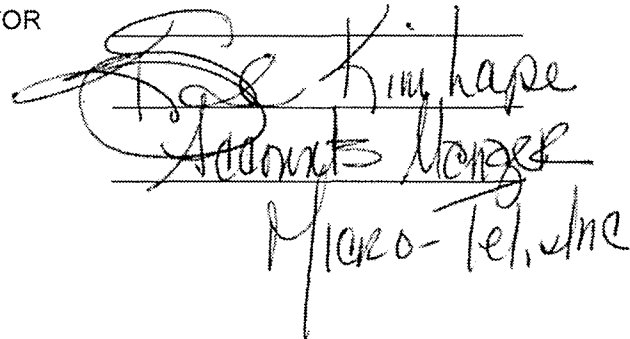 TOR
Kimhape
Accounts Manager
Micro-Tel, Inc